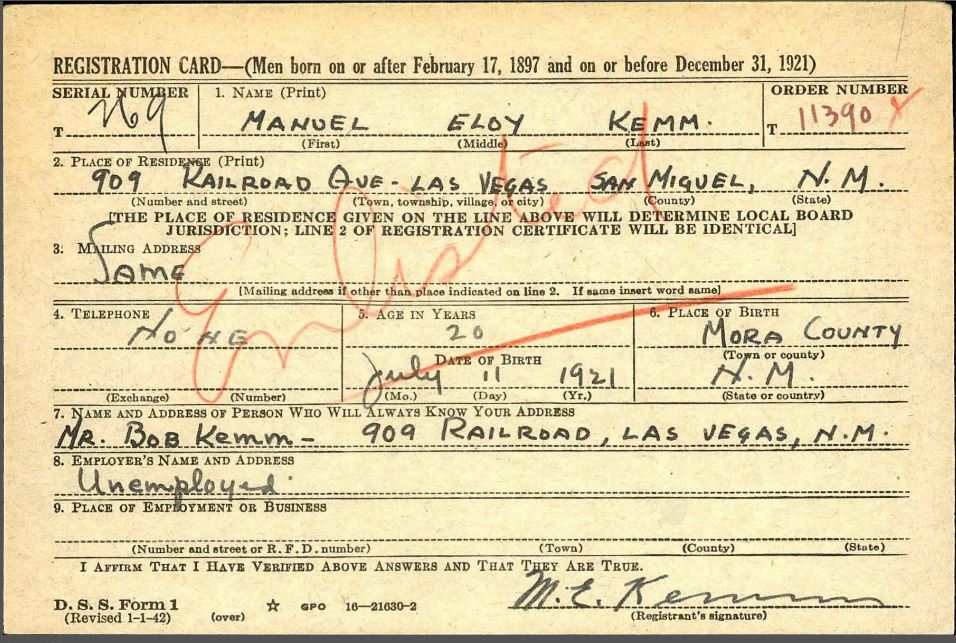 REGISTRATION CARD—(Men born on or after February 17, 1897 and on or before December 31, 1921)
SERIAL NUMBER 1. NAME (Print) ORDER NUMBER
T N69 MANUEL ELOY KEMM. T 11390
(First) (Middle) (Last)
2. PLACE OF RESIDENCE (Print)
909 RAILROAD AVE- LAS VEGAS SAN MIGUEL, N.M.
(Number and street) (Town, township, village, or city) (County) (State)
[THE PLACE OF RESIDENCE GIVEN ON THE LINE ABOVE WILL DETERMINE LOCAL BOARD
JURISDICTION; LINE 2 OF REGISTRATION CERTIFICATE WILL BE IDENTICAL]
3. MAILING ADDRESS
SAME
[Mailing address if other than place indicated on line 2. If same insert word same]
Enlisted
4. TELEPHONE 5. AGE IN YEARS 6. PLACE OF BIRTH
NONE 20 MORA COUNTY
DATE OF BIRTH (Town or county)
July 11 1921 N.M.
(Exchange) (Number) (Mo.) (Day) (Yr.) (State or country)
7. NAME AND ADDRESS OF PERSON WHO WILL ALWAYS KNOW YOUR ADDRESS
MR. BOB Kemm- 909 RAILROAD, LAS VEGAS, N.M.
8. EMPLOYER'S NAME AND ADDRESS
Unemployed
9. PLACE OF EMPLOYMENT OR BUSINESS
(Number and street or R. F. D. number) (Town) (County) (State)
I AFFIRM THAT I HAVE VERIFIED ABOVE ANSWERS AND THAT THEY ARE TRUE.
M.E. Kemm
D. S. S. Form 1 ☆ GPO 16—21630-2 (Registrant's signature)
(Revised 1-1-42) (over)